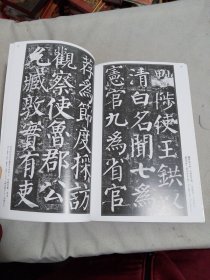 黜陟使王鉷以
清白名聞七爲
憲官九爲省官
荐爲節度採訪
觀察使魯郡公
允臧敦實有吏